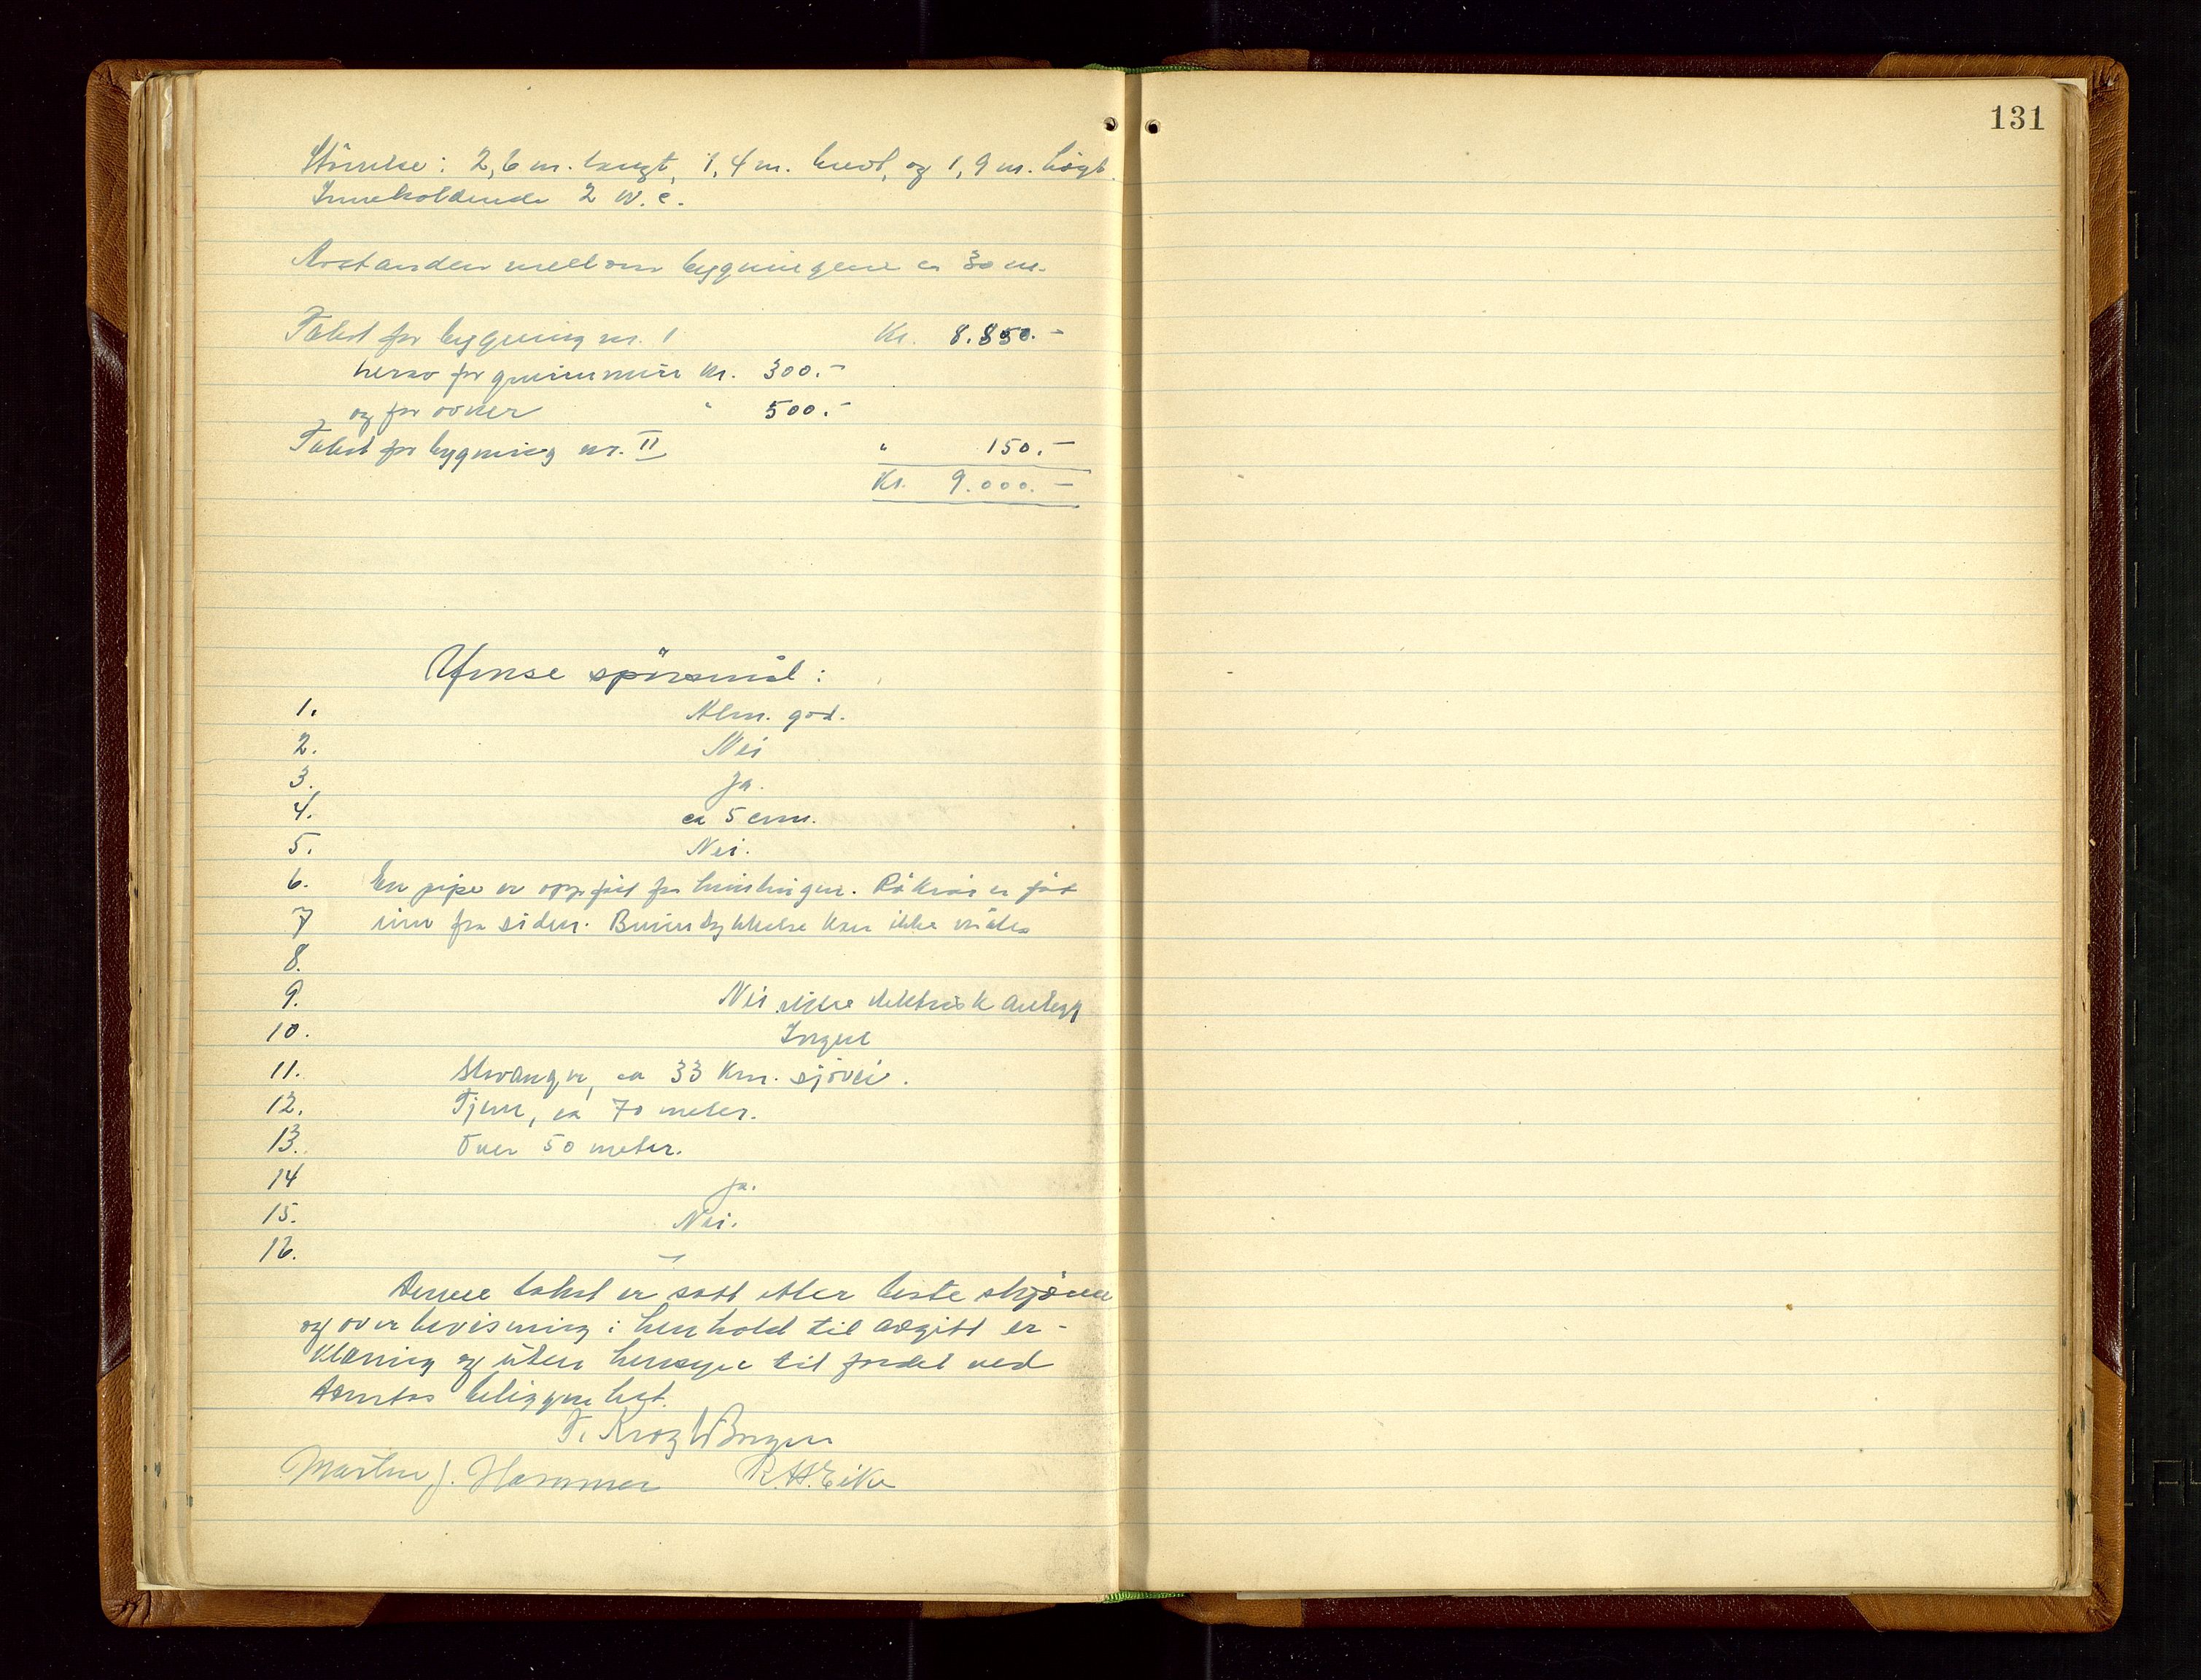 Störrelse: 2,6 m. langt, 1,4 m. bredt, og 1,9 m. högt.
Inneholdende 2 W.C.
Avstanden mellom bygningene er 30 m.
Takst for bygning nr. 1 Kr. 8.850.-
herav for grunnmur kr. 300.-
og for ovner " 500.-
Takst for bygning nr. II " 150.-
Kr. 9.000.-
spörsmål:
1. Alm. god.
2. Nei
3. Ja.
4. ca 5 cm.
5. Nei.
6. En pipe er oppfört for Rökrör er fört
7 inn fra siden. kan ikke måles
8.
9. Nei ikke elektrisk anlegg
10. Ingen
11. Stavanger, ca 33 km. sjövei.
12. Tjern, ca 70 meter.
13. Over 50 meter.
14 Ja.
15. Nei.
16. —
Denne takst er satt etter beste skjönn
og overbevisning i henhold til avgitt er-
klæring og uten hensyn til fordel ved
tomtas beliggenhet.
T. Krog
Martin J. Hammer R. H. Eike
131